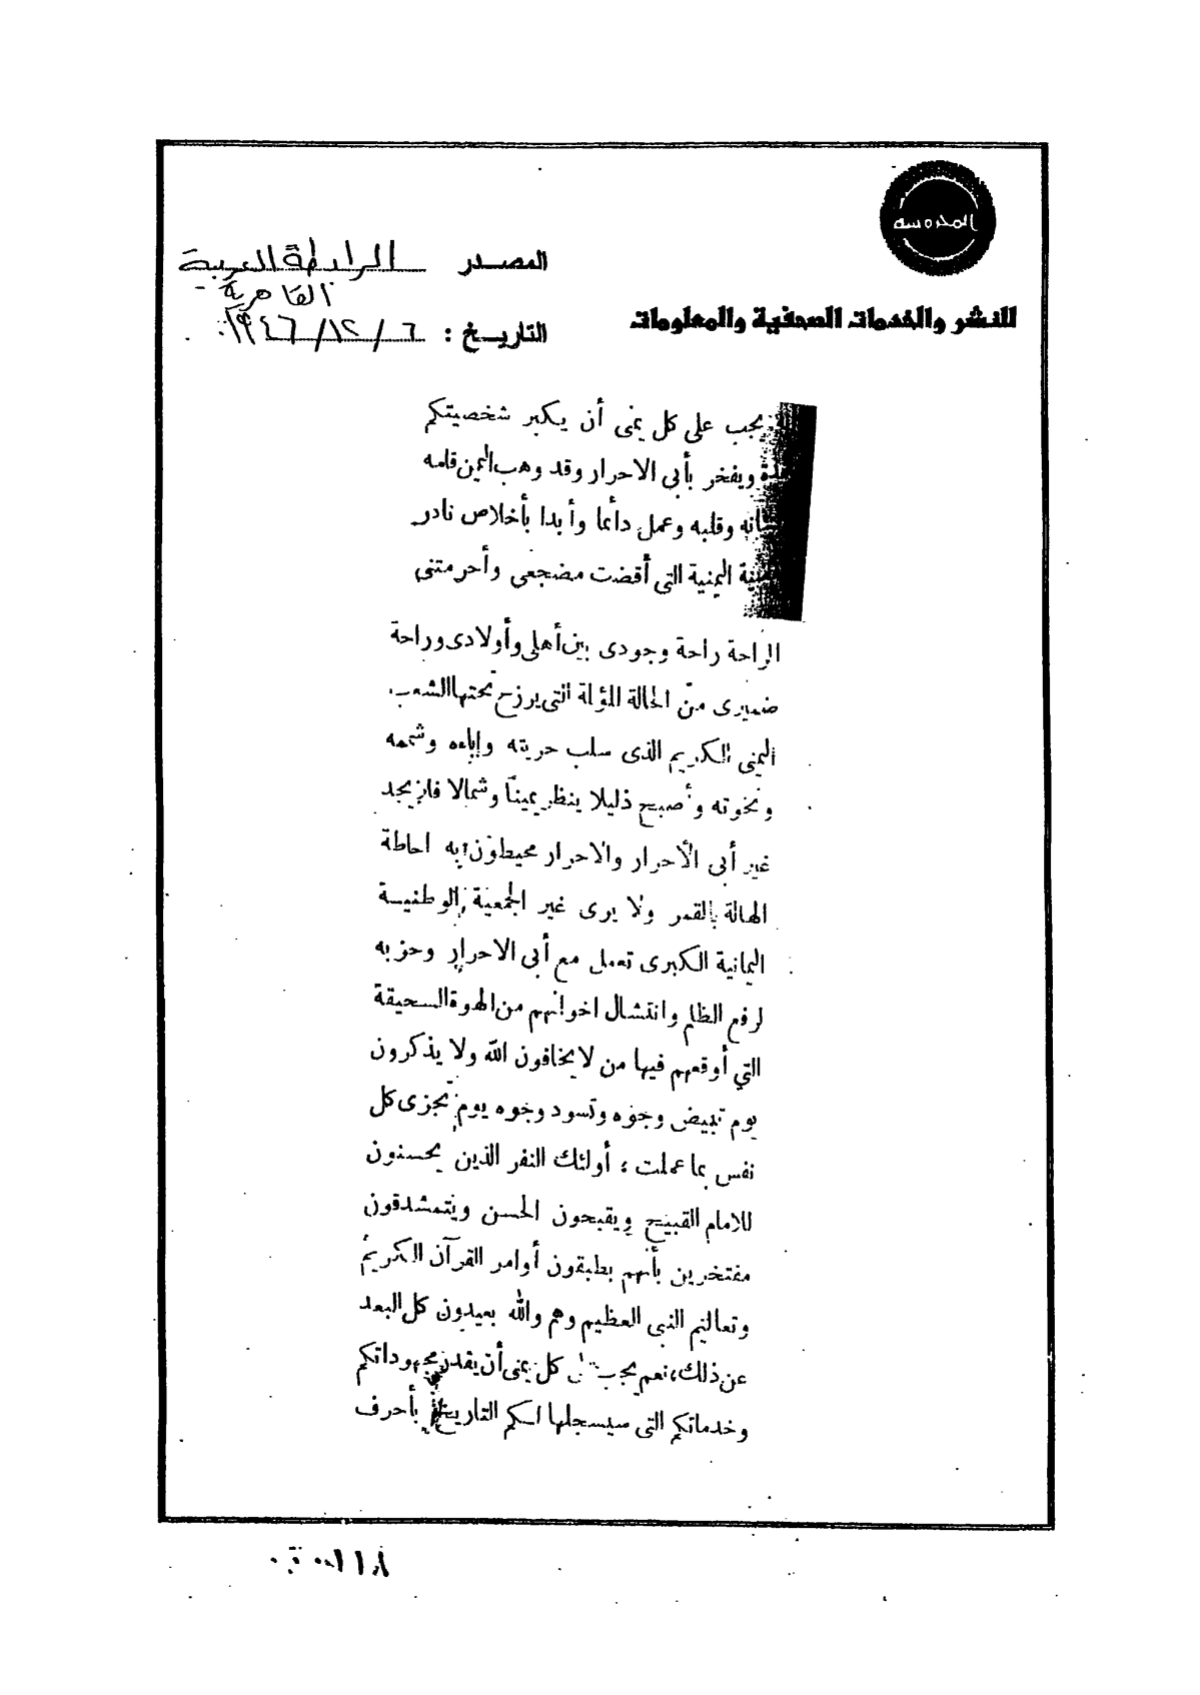 المحروسة
المصدر الرابطة العربية
القاهرية
للنشر والخدمات الصحفية والمعلومات
التاريخ : ٦ / ١٢ / ١٩٤٦
يجب على كل يمنى أن يكبر شخصيتكم
ويفخر بأبى الاحرار وقد وهب اليمن قلمه
وقلبه وعمل دائما وأبدا بأخلاص نادر
اليمنية التى أقضت مضجعى وأحرمتنى
الراحة راحة وجودى بين أهلى وأولادى وراحة
ضميرى من الحالة المؤلمة التى يرزح تحتها الشعب
اليمنى الكريم الذى سلب حريته وإباءه وشممه
ونخوته وأصبح ذليلا ينظر يمينا وشمالا فلا يجد
غير أبى الأحرار والاحرار محيطون به احاطة
الهالة بالقمر ولا يرى غير الجمعية الوطنيسة
اليمانية الكبرى تعمل مع أبى الاحرار وحزبه
لرفع الظلم وانتشال اخوانهم من الهوة السحيقة
التي أوقعهم فيها من لا يخافون الله ولا يذكرون
يوم تبيض وجوه وتسود وجوه يوم تجزى كل
نفس بما عملت ، أولئك النفر الذين يحسنون
للامام القبيح ويقبحون الحسن ويتمشدقون
مفتخرين بأنهم يطبقون أوامر القرآن الكريم
وتعاليم النبى العظيم وهم والله بعيدون كل البعد
عن ذلك، نعم يجب على كل يمنى أن يقدر مجهوداتكم
وخدماتكم التى سيسجلها لكم التاريخ بأحرف